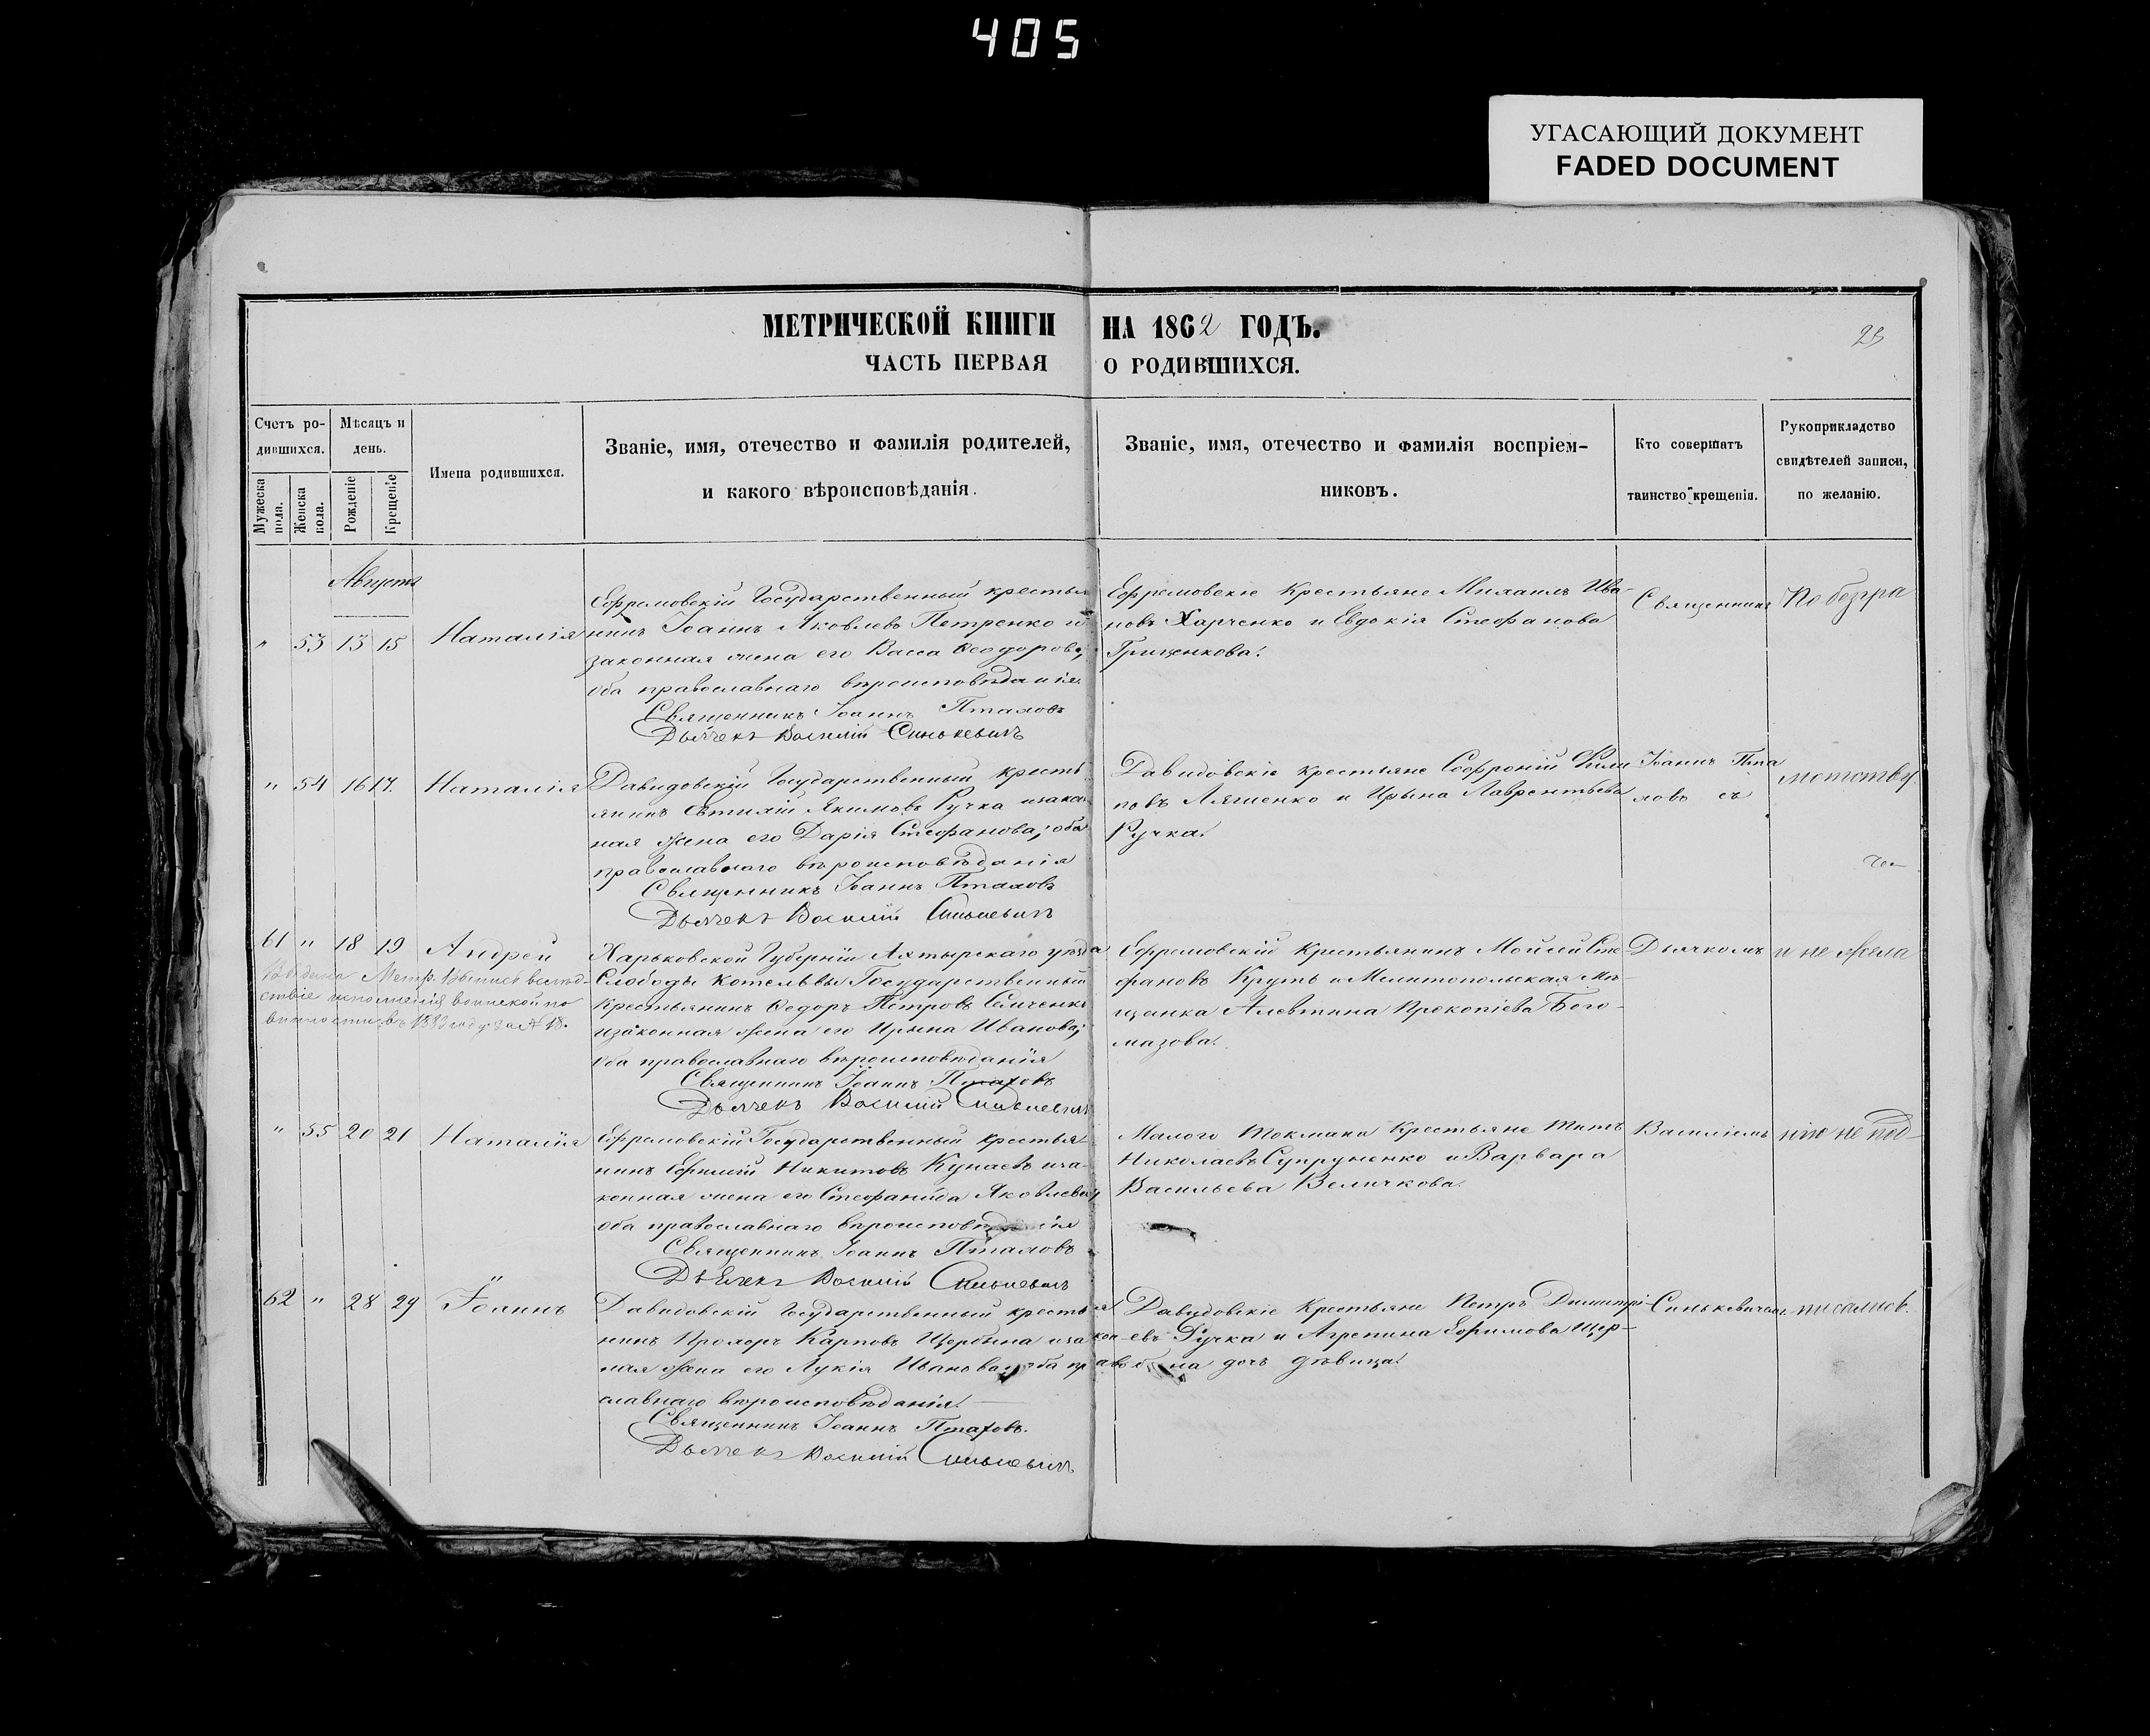 405
УГАСАЮЩИЙ ДОКУМЕНТ
FADED DOCUMENT
МЕТРИЧЕСКОЙ КНИГИ НА 1862 ГОДЪ.
25
ЧАСТЬ ПЕРВАЯ О РОДИВШИХСЯ.
Счетъ ро-
дившихся.
Мужеска
пола.
Женска
пола.
Мѣсяцъ и
день.
Рожденіе
Крещеніе
Имена родившихся.
Званіе, имя, отечество и фамилія родителей,
и какого вѣроисповѣданія.
Званіе, имя, отечество и фамилія воспріем-
никовъ.
Кто совершатъ
таинство крещенія.
Рукоприкладство
свидѣтелей записи,
по желанію.
Августа
" 53 13 15 Наталія
Ефремовскій Государственный крестья
нинъ Іоаннъ Яковлевъ Петренко и
законная жена его Васса Ѳеодорова;
оба православнаго вѣроисповѣданія.
Священникъ Іоаннъ Птаховъ
Дьячекъ Василій Синькевичъ
Ефремовскіе Крестьяне Михаилъ Ива-
новъ Харченко и Евдокія Стефанова
Грищенкова.
Священникъ
По безгра
" 54 16 17. Наталія
Давидовскій Государственный кресть
янинъ Евтихій Якимовъ Ручка изако
ная жена его Дарія Стефанова; оба
православнаго вѣроисповѣданія
Священникъ Іоаннъ Птаховъ
Дьячекъ Василій Синькевичъ
Давидовскіе крестьяне Софроній Фили
повъ Ляшенко и Ирына Лаврентьева
Ручка.
Іоаннъ Пта
ховъ съ
мотству.
61 " 18 19 Андрей
Метр. Выпись вслѣд-
ствіе исполненія воинской по
винности въ 1883 году за № 18.
Харьковской Губерніи Ахтырскаго уѣзда
Слободы Котельвы Государственный
Крестьянинъ Ѳедоръ Петровъ Семченко
изаконная жена его Ирына Иванова;
оба православнаго вѣроисповѣданія
Священникъ Іоаннъ Птаховъ
Дьячекъ Василій Синькевичъ
Ефремовскій Крестьянинъ Мойсей Сте
фановъ Круть и Мелитопольская Мѣ-
щанка Алевтина Прокопіева Бого-
мазова.
Дьячкомъ
и не жела
" 55 20 21 Наталія
Ефремовскій Государственный крестья-
нинъ Ефимій Никитовъ Кунаевъ иза-
конная жена его Стефанида Яковлева;
оба православнаго
Священникъ Іоаннъ Птаховъ
Дьячекъ Василій Синькевичъ
Малого Токмака Крестьяне Титъ
Николаевъ Супруненко и Варвара
Васильева Величкова.
Василіемъ
нію не под-
62 " 28 29 Іоаннъ
Давидовскій Государственный крестья
нинъ Прохоръ Карповъ Щербина изакон-
ная жена его Лукія Иванова; оба право
славнаго вѣроисповѣданія.
Священникъ Іоаннъ Птаховъ.
Дьячекъ Василій Синькевичъ
Давидовскіе Крестьяне Петръ Димитрі-
евъ Ручка и Агрепина Ефимова Щер-
дочь дѣвица.
Синькевичемъ.
писались.